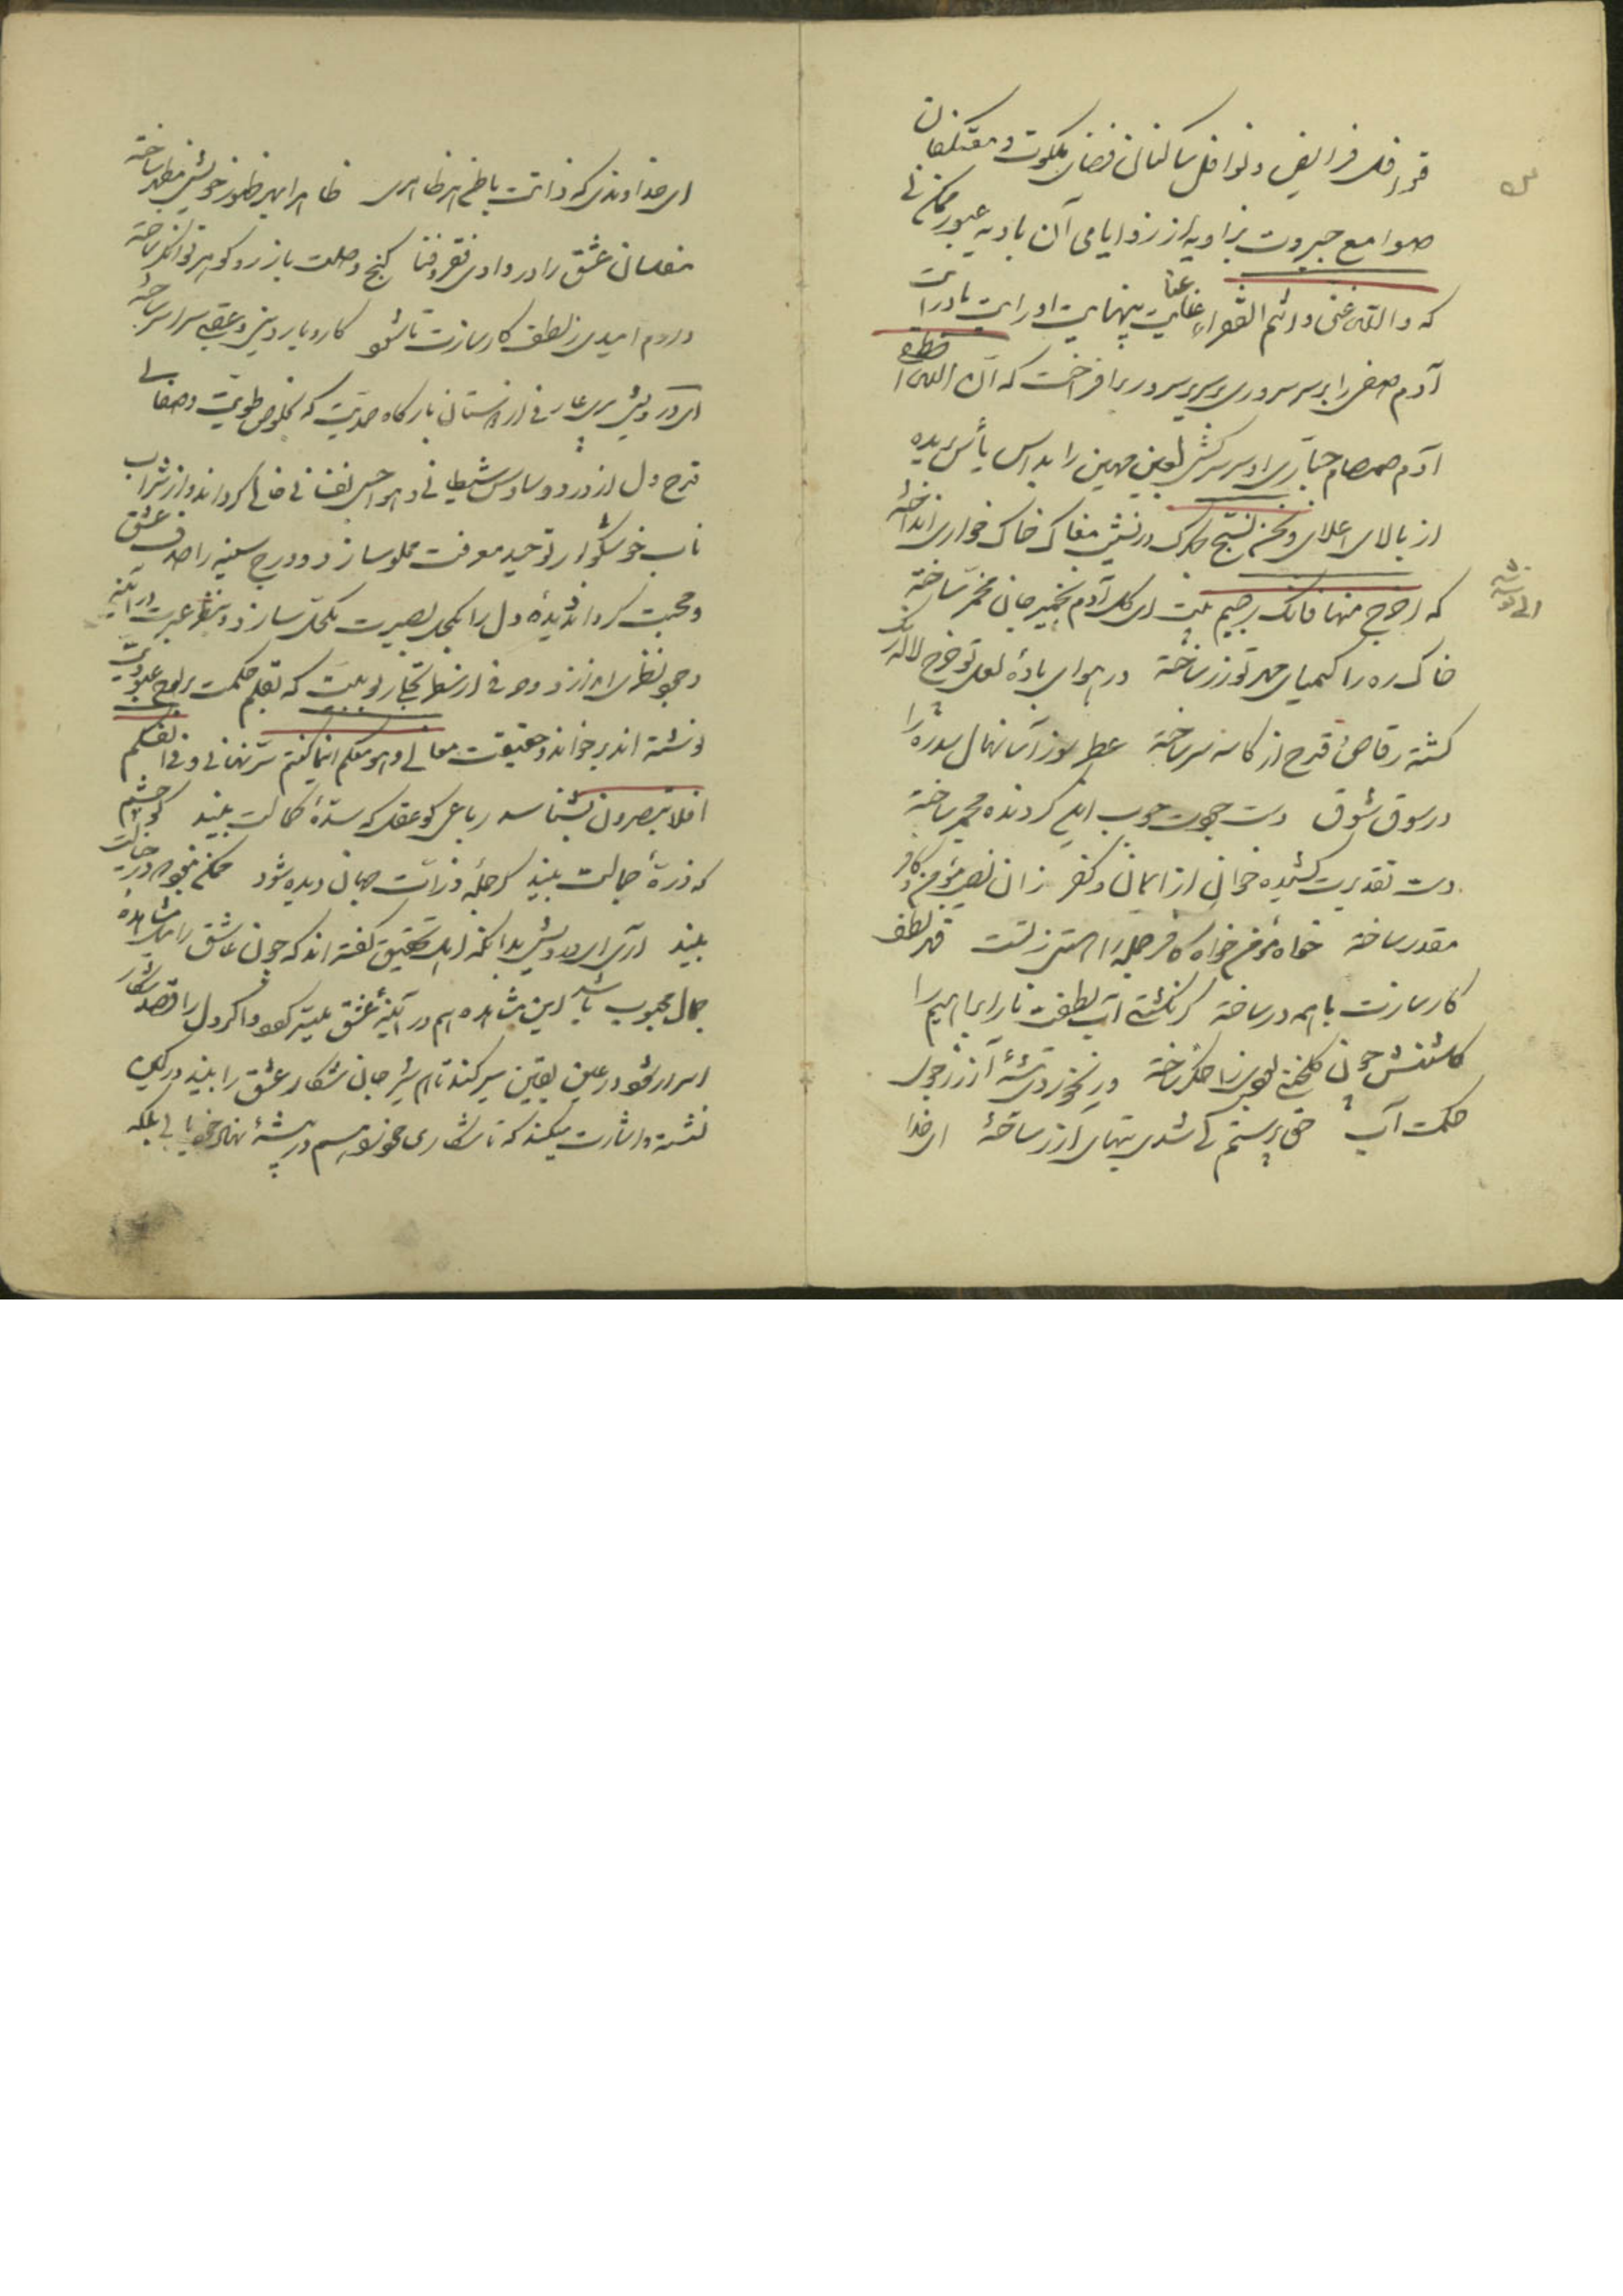 قوافل فرایض و نوافل ساکنان فضای ملکوت و معتکفان
صوامع جبروت بزاویه از زوایای آن بادیه عبور ممکن نی
که واللّه غنی وانتم الفقراء عنایت بینهایت او رایت
آدم صفی را بر سر سروری و سریر سرور برافراخت که ان اللّه اصطفی
آدم صمصام جباری او سر سرکش لعین مهین را بداس یأس بریده
از بالای اعلای ونحن نسبح بحمدک در نشیب مغاک خاک خواری انداخته
که اخرج منها فانک رجیم بیت ای کل آدم بخمیر جان مخمر ساخته
خاک ره را کیمیای مهر تو زر ساخته در هوای بادهٔ لعل تو خوخ لاله رنگ
کشته رقاص و قدح از کاسه سر ساخته عطر سوز آسا نهال سدره را
در سوق شوق دست جودت چوب کردنده مجمر ساخته
دست تقدیرت کشیده خوان از ایمان و کفر زان نصیب مؤمن و کافر
مقدر ساخته خواه مؤمن خواه کافر جمله را هستی ز تست قهر و لطف
کارسازت با همه در ساخته کر نکشتی آب لطفت نار ابراهیم را
کلشنش چون کلخنی بودی ز اخکر ساخته ور نخوردی تیشهٔ آزر ز جوی
حکمت آب حق پرستم کی شدی بتهای آزر ساخته ای خدا
ای خداوندی که ذاتت باطن هر ظاهری ظاهرا بهر ظهور خویش مظهر ساخته
مفلسان عشق را در وادی فقر و فنا کنج وصلت باز زر و کوهر توانکر ساخته
دارم امیدی ز لطف کارسازت تا شود کار و بار دینی و عقبی سراسر ساخته
ای درویش بری عارفی از آستان بارکاه صمدیت که بخلوص طویت و صفای
قدح دل از درد وساوس شیطانی و هواجس نفسانی خالی کرداند و از شراب
ناب خوشکوار توحید معرفت مملو سازد و درج سینه را صدف عشق
و محبت کرداند دیدهٔ دل را بکحل بصیرت مکحل سازد و بنظر عبرت در آینه
وجود نظری اندازد و حرفی از سطر که بقلم حکمت بر لوح عبودیت
نوشته اند بر خواند و حقیقت معانی وهو معکم اینما کنتم سر نهانی وفی انفسکم
افلا تبصرون بشناسد رباعی کو عقل که سدهٔ کمالت بیند کو چشم
که ذرهٔ جمالت بیند کر جملهٔ ذرات جهان دیده شود ممکن نبود که در خیالت
بیند آری ای درویش بدانکه اهل تحقیق کفته اند که چون عاشق را مشاهدهٔ
جمال محبوب باشد این مشاهده هم در آینهٔ عشق میسر شود و اکر دل را قصد شکار
اسرار شود در عین یقین سیر کند تا هم شیر جان شکار عشق را بیند در کمین
نشسته و اشارت میکند که تا شکاری چون تو هستم در بیشهٔ نهادی خود یا لی بلکه